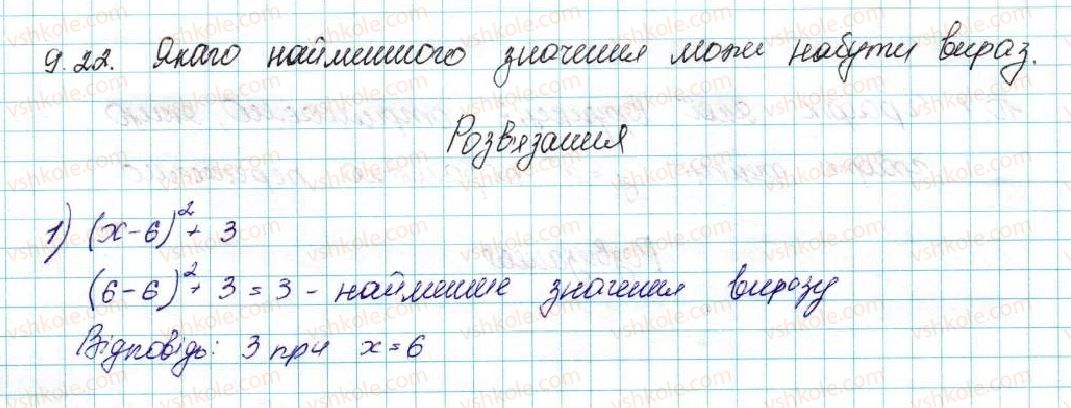 9.22. Якого найменшого значення може набути вираз.
Розв'язання
1) (x-6)² + 3
(6-6)² + 3 = 3 - найменше значення виразу
Відповідь: 3 при x = 6